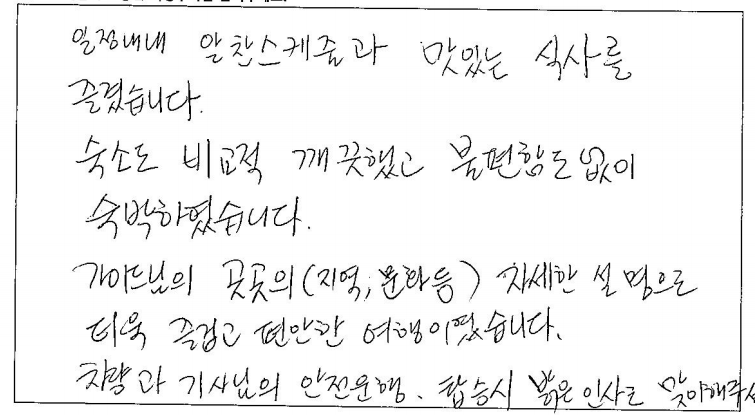 일정내내 알찬스케줄과 맛있는 식사를
즐겼습니다.
숙소도 비교적 깨끗했고 불편함도 없이
숙박하였습니다.
가이드님의 곳곳의(지역, 문화등) 자세한 설명으로
더욱 즐겁고 편안한 여행이였습니다.
차량과 기사님의 안전운행. 탑승시 밝은 인사로 맞이해주